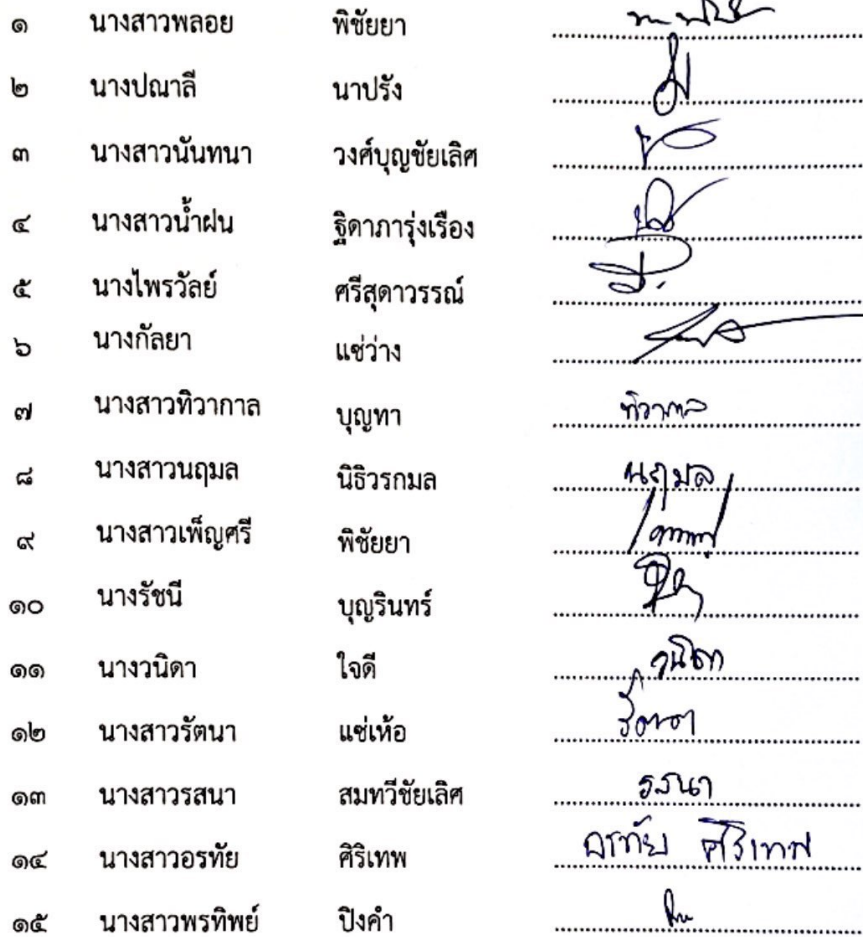 ๑ นางสาวพลอย พิชัยยา
๒ นางปณาลี นาปรัง
๓ นางสาวนันทนา วงศ์บุญชัยเลิศ
๔ นางสาวน้ำฝน ฐิดาภารุ่งเรือง
๕ นางไพรวัลย์ ศรีสุดาวรรณ์
๖ นางกัลยา แซ่ว่าง
๗ นางสาวทิวากาล บุญทา ทิวากาล
๘ นางสาวนฤมล นิธิวรกมล นฤมล
๙ นางสาวเพ็ญศรี พิชัยยา
๑๐ นางรัชนี บุญรินทร์
๑๑ นางวนิดา ใจดี วนิดา
๑๒ นางสาวรัตนา แซ่เห้อ
๑๓ นางสาวรสนา สมทวีชัยเลิศ รสนา
๑๔ นางสาวอรทัย ศิริเทพ อรทัย ศิริเทพ
๑๕ นางสาวพรทิพย์ ปิงคำ